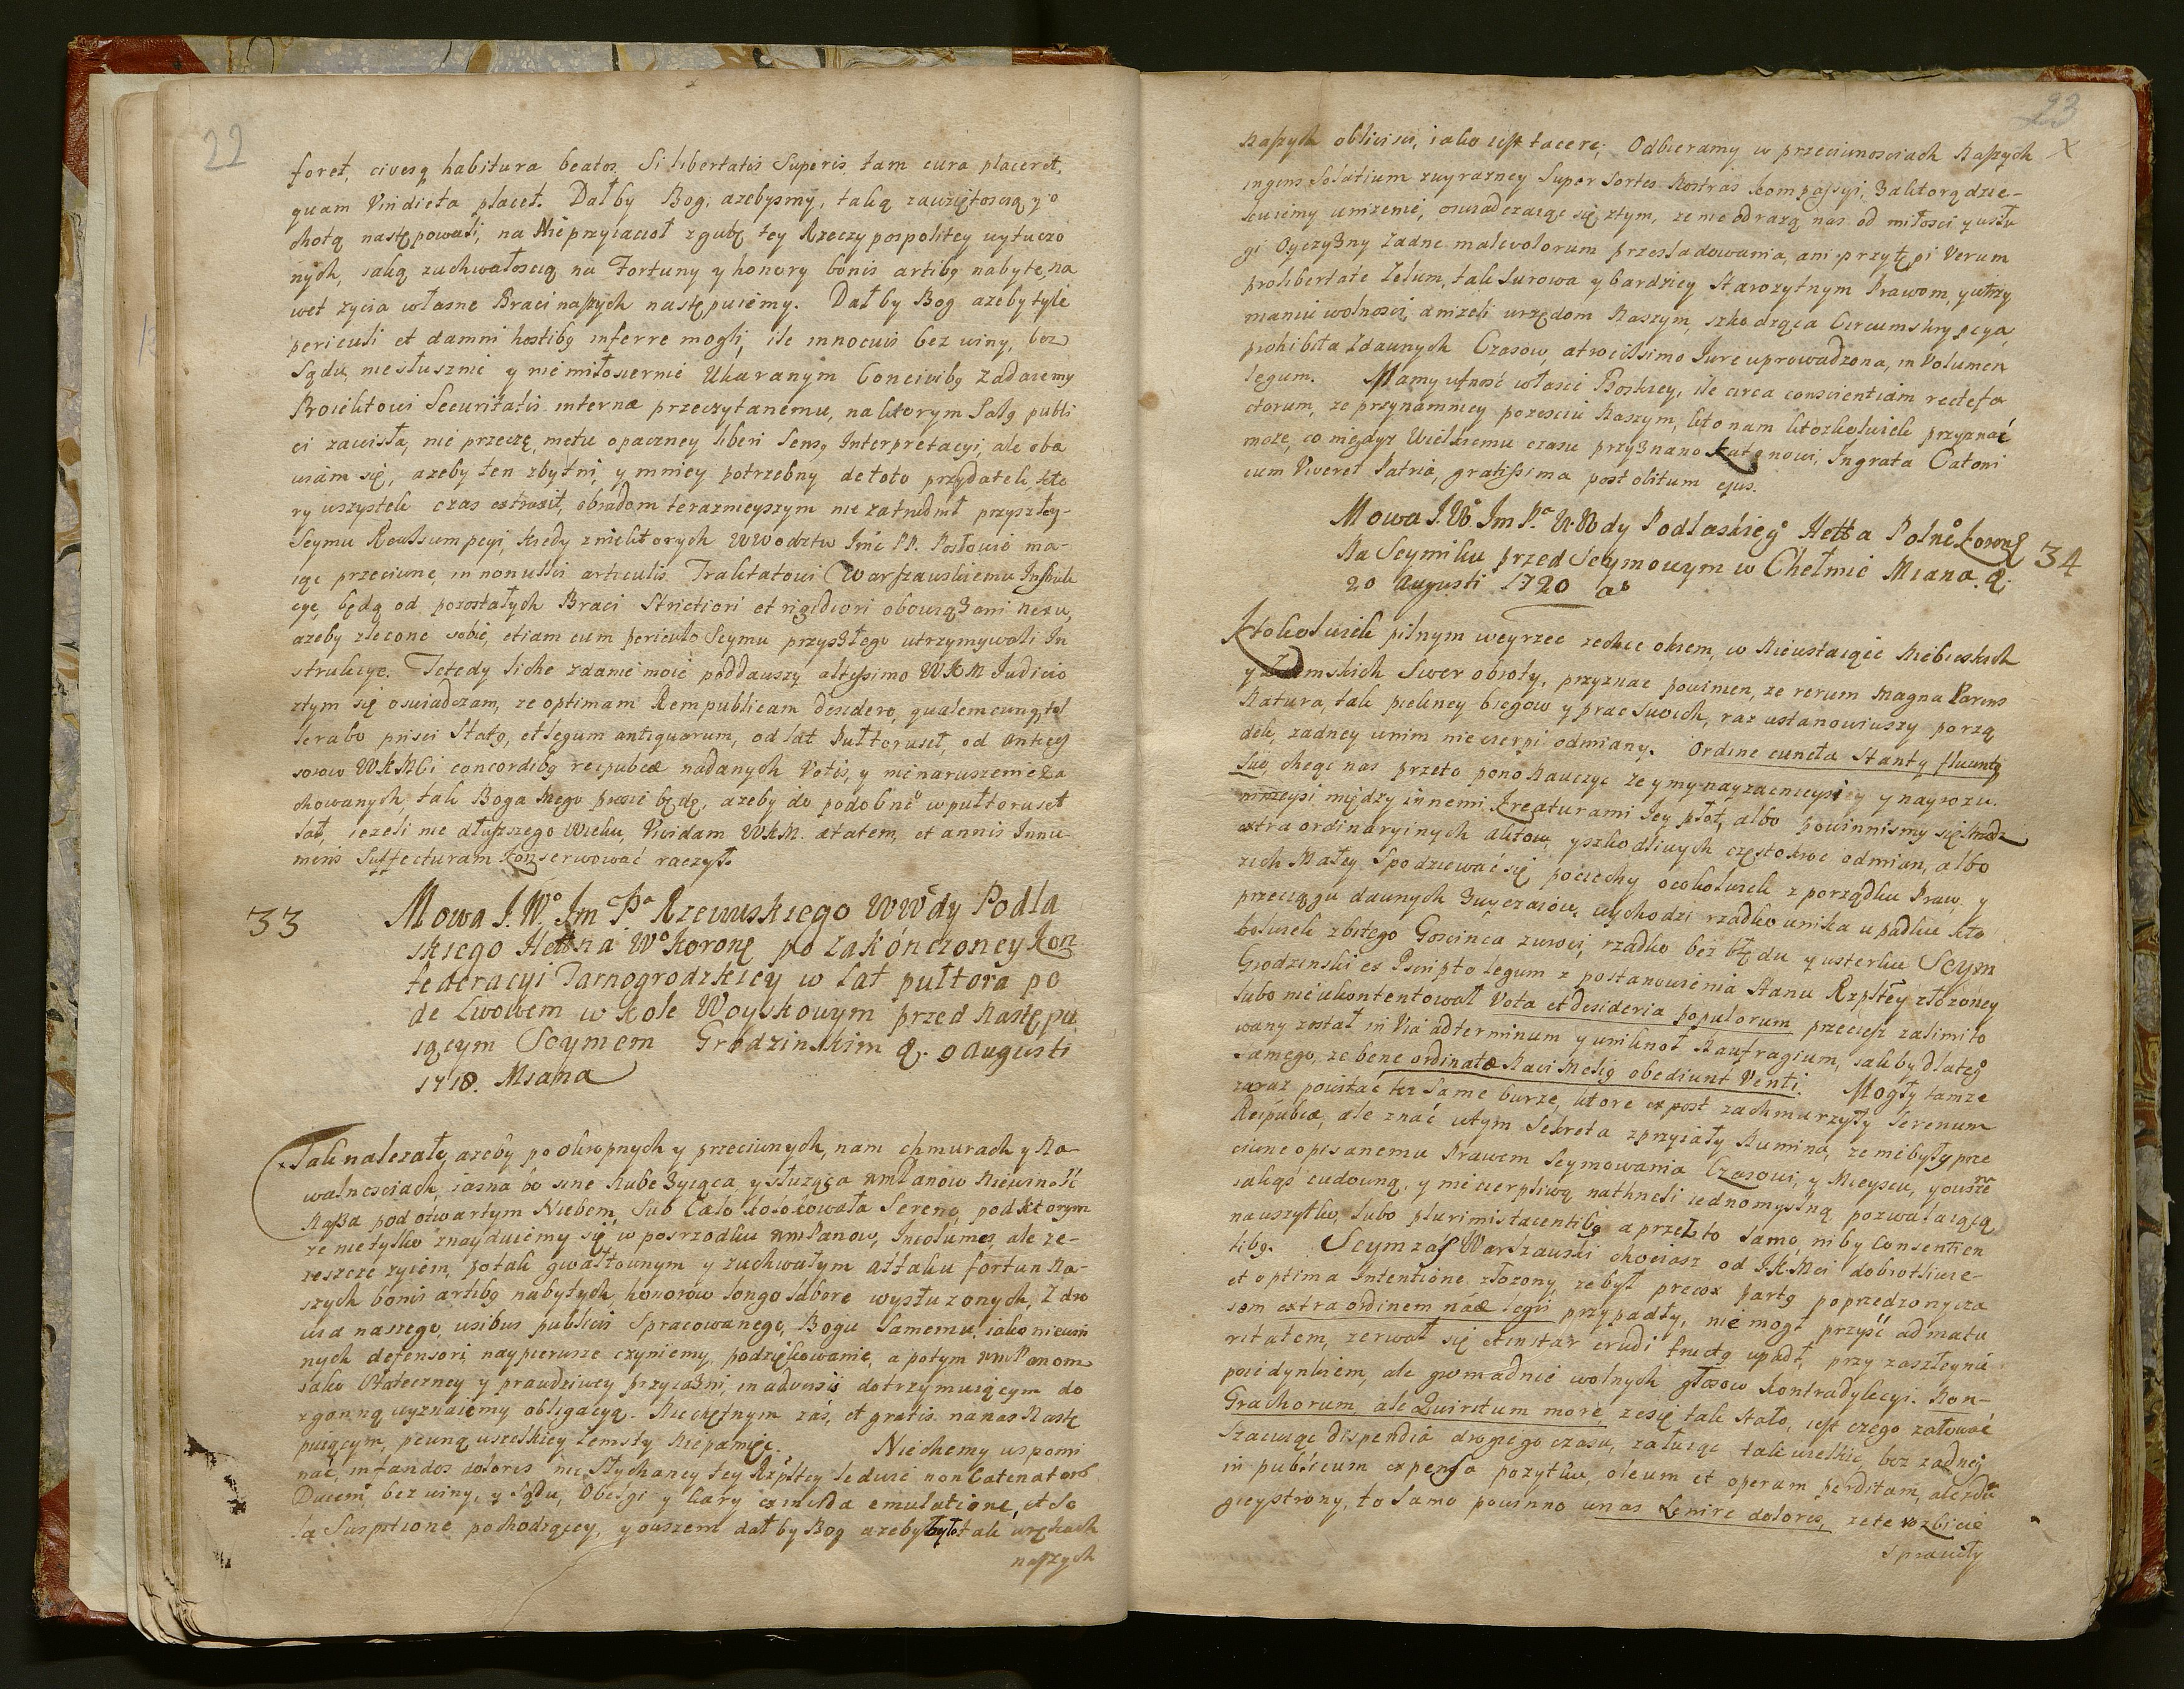 22
foret, civesq habitura beatos. Si libertatis Superis tam cura placeret,
quam Vindicta placet. Dał by Bog, azebysmy, taką zawziętoscią y o
chotą następowali, na Nieprzyiacioł zgubę tey Rzeczypospolitey wytuczo
nych, iaką zuchwałoscią na Fortuny y honory bonis artibq nabyte, na
wet zycia własne Braci naszych następuiemy. Dał by Bog azeby tyle
periculi et damni hostibq inferre mogli, ile innocuis bez winy, bez
Sądu, niesłusznie y niemiłosiernie Ukaranym Concivibq zadaiemy
Proiektowi Securitatis internæ przeczytanemu, na ktorym Salq publi
ci zawisła, nie przeczę, metu opaczney liberi Sensq Interpretacyi, ale oba
wiam się, azeby ten zbytni, y mniey potrzebny de toto przydatek, kto
ry wszystek czas extraxit, obradom terazniejszym nie zatrudnił przyszłey
Seymu Reassumpcyi, kiedy z niektorych WWodztw Imć PP. Posłowie ma-
iąc przeciwne, in nonullis articulis Traktatowi Warszawskiemu Instruk
cye, będą od pozostałych Braci Strictiori et rigidiori obowiązani nexu,
azeby zlecone sobie, etiam cum periculo Seymu przyszłego utrzymywali In
strukcye. Te tedy liche zdanie moie poddawszy altissimo WKM Iudicio
ztym się oswiadczam, ze optimam Rempublicam desidero, qualemcunq tol
lerabo prisci Statq, et legum antiquarum, od lat Pułtoruset, od Antecess
sorow WKMCi concordibq reipublicæ nadanych Votis, y nienaruszenie za
chowanych, tak Boga mego prosić będę, azeby do podobne w pułtoruset
lat, iezeli nie dłuzszego Wieku, Vividam WKM. ætatem, et annis Innu
meris Suffecturam konserwować raczył.
33
Mowa J.W. Jm Pa Rzewuskiego WWdy Podla
skiego Hettna Wo Koronę po zakończoney Kon
federacyi Tarnogrodzkiey w lat pułtora po
de Lwowem w Kole Woyskowym przed Następu
iącym Seymem Grodzinskim d. 9 Augusti
1718. Miana
Tak nalezało, azeby po okropnych y przeciwnych, nam chmurach y Na-
wałnosciach, iasna bo sine Nube Zyiąca y słuząca wmPanow Niewiność
Nasza pod otwartym Niebem, Sub Cælo lokowała Sereno, pod ktorym
ze nietylko znayduiemy się w posrzodku wmPanow, Incolumes ale ie-
szcze zyiem, po tak gwałtownym y zuchwałym attaku fortun Na-
szych bonis artibq nabytych, honorów longo labore wysłuzonych, Zdro
wia naszego, usibus publicis Spracowanego, Bogu Samemu iako niewin
nych defensori, naypierwsze czyniemy podziękowanie, a potym wmPanom
iako Stateczney y prawdziwey przyiazni, in adversis dotrzymuiącym do
zgonną wyznaiemy obligacyą. Niechętnym zaś, et gratis na nas Nastę
puiącym, pewną wszelkiey Zemsty Niepamięć. Niechcemy wspomi
nać, infandos dolores niesłychaney tey Rzpltey leduie non Catenatorq
Ducem, bez winy, y Sądu, Obelgi y kary ex invida emulatione, et So
la Susptione pochodzącey, y owszem dał by Bog azeby było tak w rękach
naszych
23
naszych oblivisci, iako iest tacere; Odbieramy w przeciwnosciach Naszych
ingens Solatium zwyrazney Super Sortes Nostras kompassyi, za ktorą dzię-
kuiemy unizenie, oswiadczaiąc się ztym, ze nie odrazą nas od miłosci y usłu
gi Oyczyzny zadne malevolorum przesladowania, ani przytępi Verum
pro libertate Zelum, tak Surowa y bardziey Starozytnym Prawom, y utrzy
maniu wolnosci, anizeli urzędom Naszym, szkodząca Circumskrypcya,
prohibita Zdawnych Czasow, atrocissimo Iure uprowadzona, in Volumen
legum. Mamy ufność własci Boskiey, ile circa conscientiam recte fa
ctorum, ze przynamniey po zesciu Naszym, kto nam ktozkolwiek przyznać
moze, co niegdyz Wielkiemu czasu przyznano Katonowi, Ingrata Catoni
cum Viveret Patria, gratissima post obitum ejus.
Mowa J.W. Jm Pa WWdy Podlaskieg Hetta Polne Koronę
Na Seymiku przed Seymowym w Chełmie Miana. d.
20 Augusti 1720 ao
34
Ktokolwiek pilnym weyrzec zechce okiem, w Nieustaiące Niebieskich
y Ziemskich Swer obroty, przyznac powinien, ze rerum magna Parens
Natura, tak piekney biegow y prac Swoich, raz ustanowiwszy porzą
dek, zadney w nim niecierpi odmiany. Ordine cuncta Stantq fluuntq
Suo, chcąc nas przeto pono nauczyc ze y my nayzacnieysi y nayrozu-
mnieysi między innemi Kreaturami Jey płod, albo powinnismy się strzedz
extraordinaryinych aktow, y szkodliwych częstokroć odmian, albo
zich Małey Spodziewać się pociechy cokolwiek z porządku Praw, y
przeciągu dawnych Zwyczaiów, wychodzi rzadko unika upadku kto
kolwiek zbitego Goscinca zwroci, rzadko bez błędu y usterku Seym
Grodzinski ex Pscripto legum z postanowienia Stanu Rzpltey złozoney
lubo nieukontentował Vota et desideria populorum przeciesz zalimito
wany został in Via ad terminum y uniknoł Naufragium, iakby dlateg
samego, ze bene ordinatæ Navi Meliq obediunt Venti. Mogły tamze
zaraz powstać też Same burze, ktore ex post zachmurzyły Serenum
Reipubcæ, ale znać w tym Sekreta zprzyiały Numina, ze nie były prze
ciwne opisanemu Prawem Seymowania Czasowi, y Mieyscu, y owsze
iakąś cudowną, y niecierpliwą nathneli iednomyslną pozwalaiącą
na wszytko, lubo plurimis tacentibq a przez to Samo, niby Consentien
tibq. Seym zaś Warszawski chociasz od J.K.Mci dobrotliwie
et optima Intentione złozony, ze był precox partq poprzedzony cza
sem extra ordinem nâæ legis przypadły, nie mogł przyść ad matu
ritatem, zerwał się et instar crudi fructq upadł, przy zaszłey nie
poiedynkiem, ale gromadnie wolnych głosow kontradykcyi. Non
Grachorum, ale Quiritum more, ze się tak stało, iest czego załować
Szacuiąc dispendia drogiego czasu, załuiąc tak wielkie, bez zadney
in publicum expensa pozytku, oleum et operam perditam, ale zdru
giey strony, to Samo powinno w nas Lenire dolores, ze te rozbicie
sprawiły